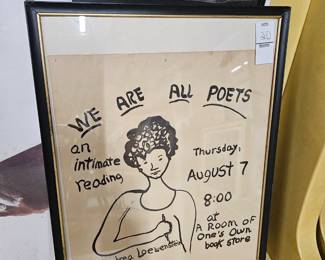 20
WE ARE ALL POETS
an
intimate
reading
Thursday,
August 7
8:00
at
A ROOM OF
One's Own
book store
Loewenstein